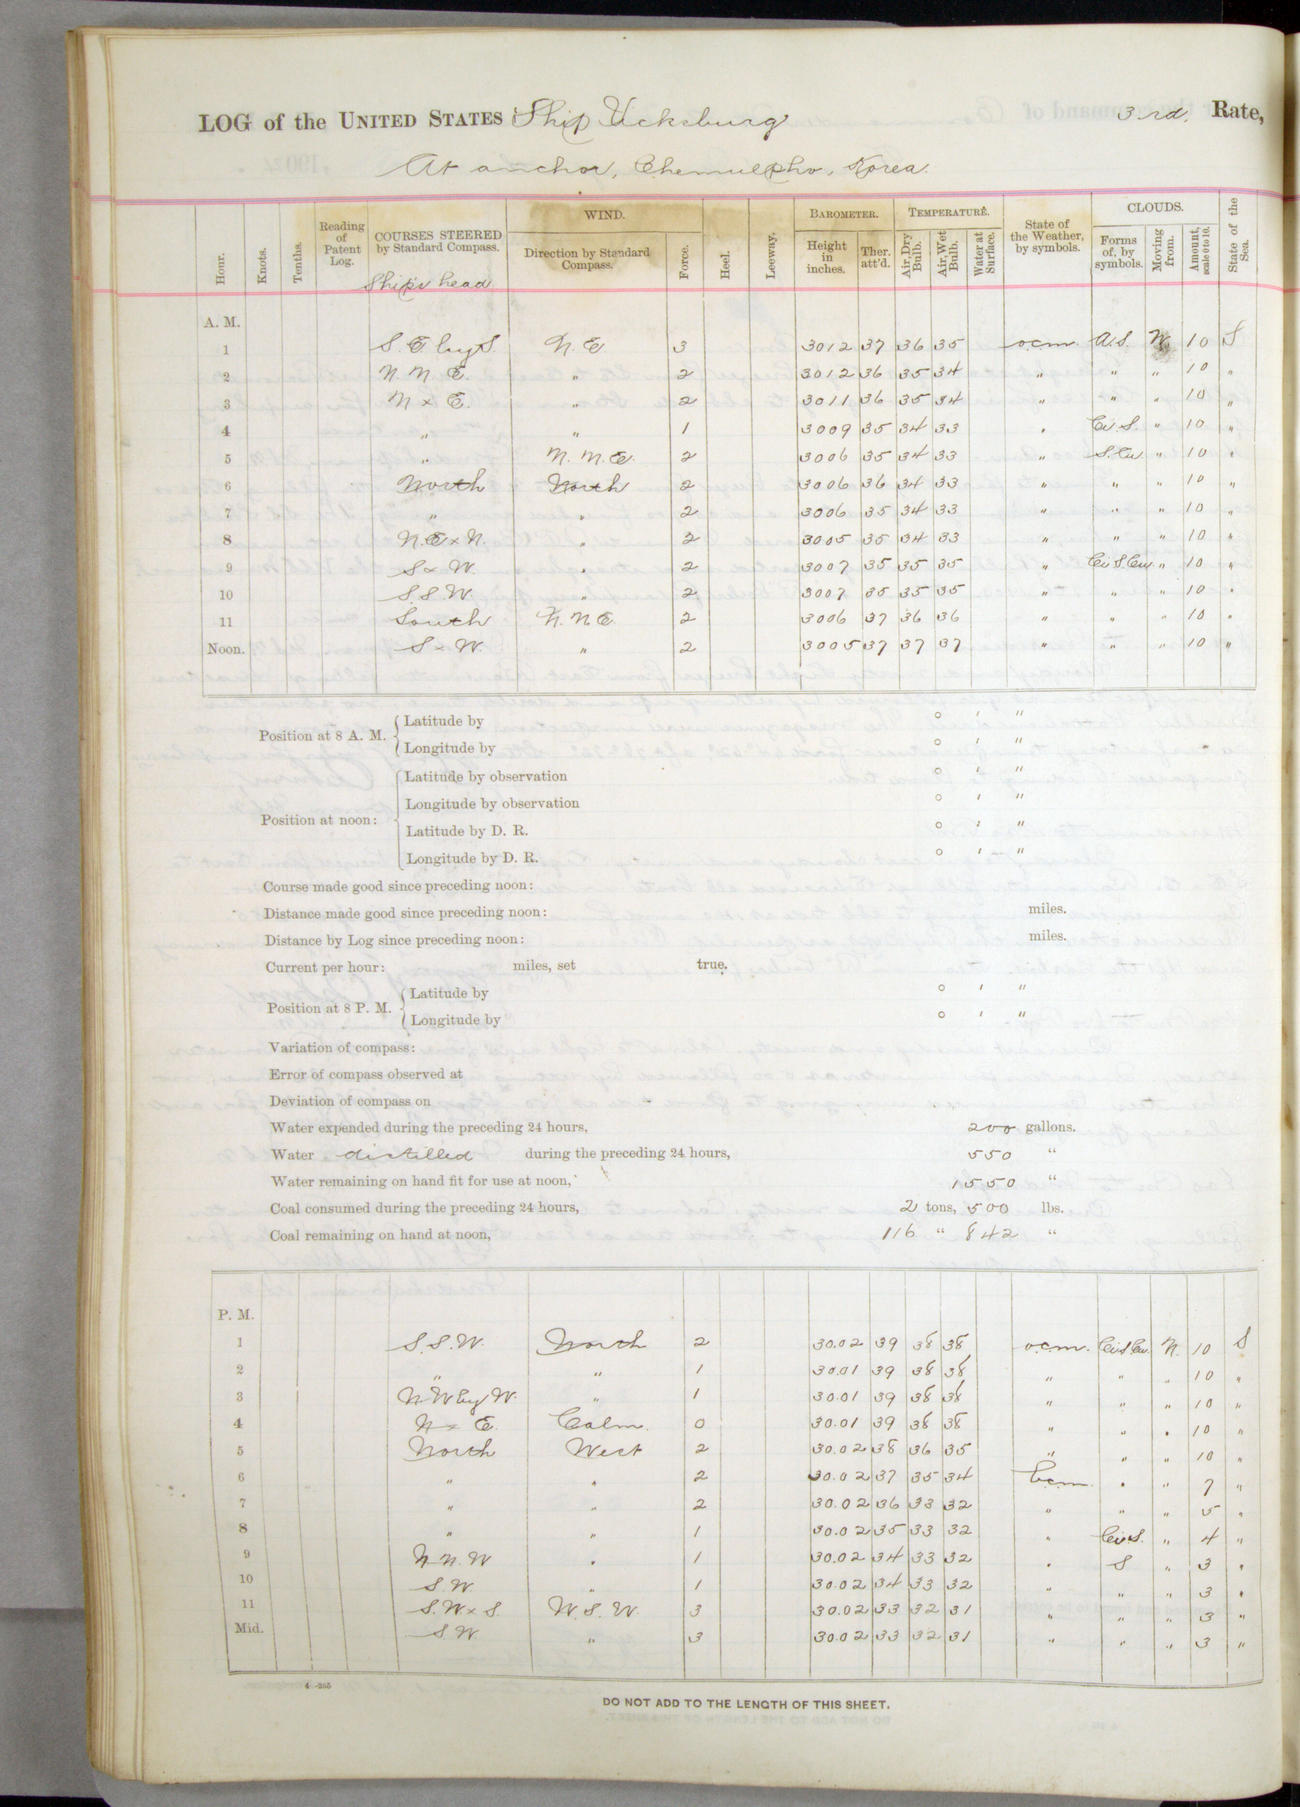 LOG of the UNITED STATES Ship Vicksburg 3rd. Rate,
At anchor, Chemulpho, Korea.
Hour. Knots. Tenths. Reading of Patent Log. COURSES STEERED by Standard Compass. WIND. Direction by Standard Compass. Force. Heel. Leeway. BAROMETER. Height in inches. Ther. att'd. TEMPERATURE. Air, Dry Bulb. Air, Wet Bulb. Water at Surface. State of the Weather, by symbols. CLOUDS. Forms of, by symbols. Moving from. Amount, scale 0 to 10. State of the Sea.
Ship's head
A. M.
1 S. E by S. N. E 3 3012 37 36 35 o.c.m A.S. N. 10 S
2 N. N. E. " 2 3012 36 35 34 " " " 10 "
3 N x E. " 2 3011 36 35 34 " " " 10 "
4 " " 1 3009 35 34 33 " Ci.S. " 10 "
5 " N. N. E. 2 3006 35 34 33 " S.Cu " 10 "
6 North North 2 3006 36 34 33 " " " 10 "
7 " " 2 3006 35 34 33 " " " 10 "
8 N.E x N. " 2 3005 35 34 33 " " " 10 "
9 S x W. " 2 3007 35 35 35 " Ci S.Cu " 10 "
10 S.S.W. " 2 3007 35 35 35 " " " 10 "
11 South N. N E 2 3006 37 36 36 " " " 10 "
Noon. S x W. " 2 3005 37 37 37 " " " 10 "
Position at 8 A. M. Latitude by ° ' "
Longitude by ° ' "
Position at noon: Latitude by observation ° ' "
Longitude by observation ° ' "
Latitude by D. R. ° ' "
Longitude by D. R. ° ' "
Course made good since preceding noon:
Distance made good since preceding noon: miles.
Distance by Log since preceding noon: miles.
Current per hour: miles, set true.
Position at 8 P. M. Latitude by ° ' "
Longitude by ° ' "
Variation of compass:
Error of compass observed at
Deviation of compass on
Water expended during the preceding 24 hours, 200 gallons.
Water distilled during the preceding 24 hours, 550 "
Water remaining on hand fit for use at noon, 1550 "
Coal consumed during the preceding 24 hours, 2 tons, 500 lbs.
Coal remaining on hand at noon, 116 " 842 "
P. M.
1 S.S.W. North 2 30.02 39 38 38 o.c.m. Ci.S Cu. N. 10 S
2 " " 1 30.01 39 38 38 " " " 10 "
3 N.W by W. " 1 30.01 39 38 38 " " " 10 "
4 N x E. Calm. 0 30.01 39 38 38 " " " 10 "
5 North West 2 30.02 38 36 35 " " " 10 "
6 " " 2 30.02 37 35 34 b.c.m. " " 7 "
7 " " 2 30.02 36 33 32 " " " 5 "
8 " " 1 30.02 35 33 32 " Ci.S. " 4 "
9 N.N.W " 1 30.02 34 33 32 " S " 3 "
10 S.W. " 1 30.02 34 33 32 " " " 3 "
11 S.W x S. W. S. W. 3 30.02 33 32 31 " " " 3 "
Mid. S.W " 3 30.02 33 32 31 " " " 3 "
4-255
DO NOT ADD TO THE LENGTH OF THIS SHEET.